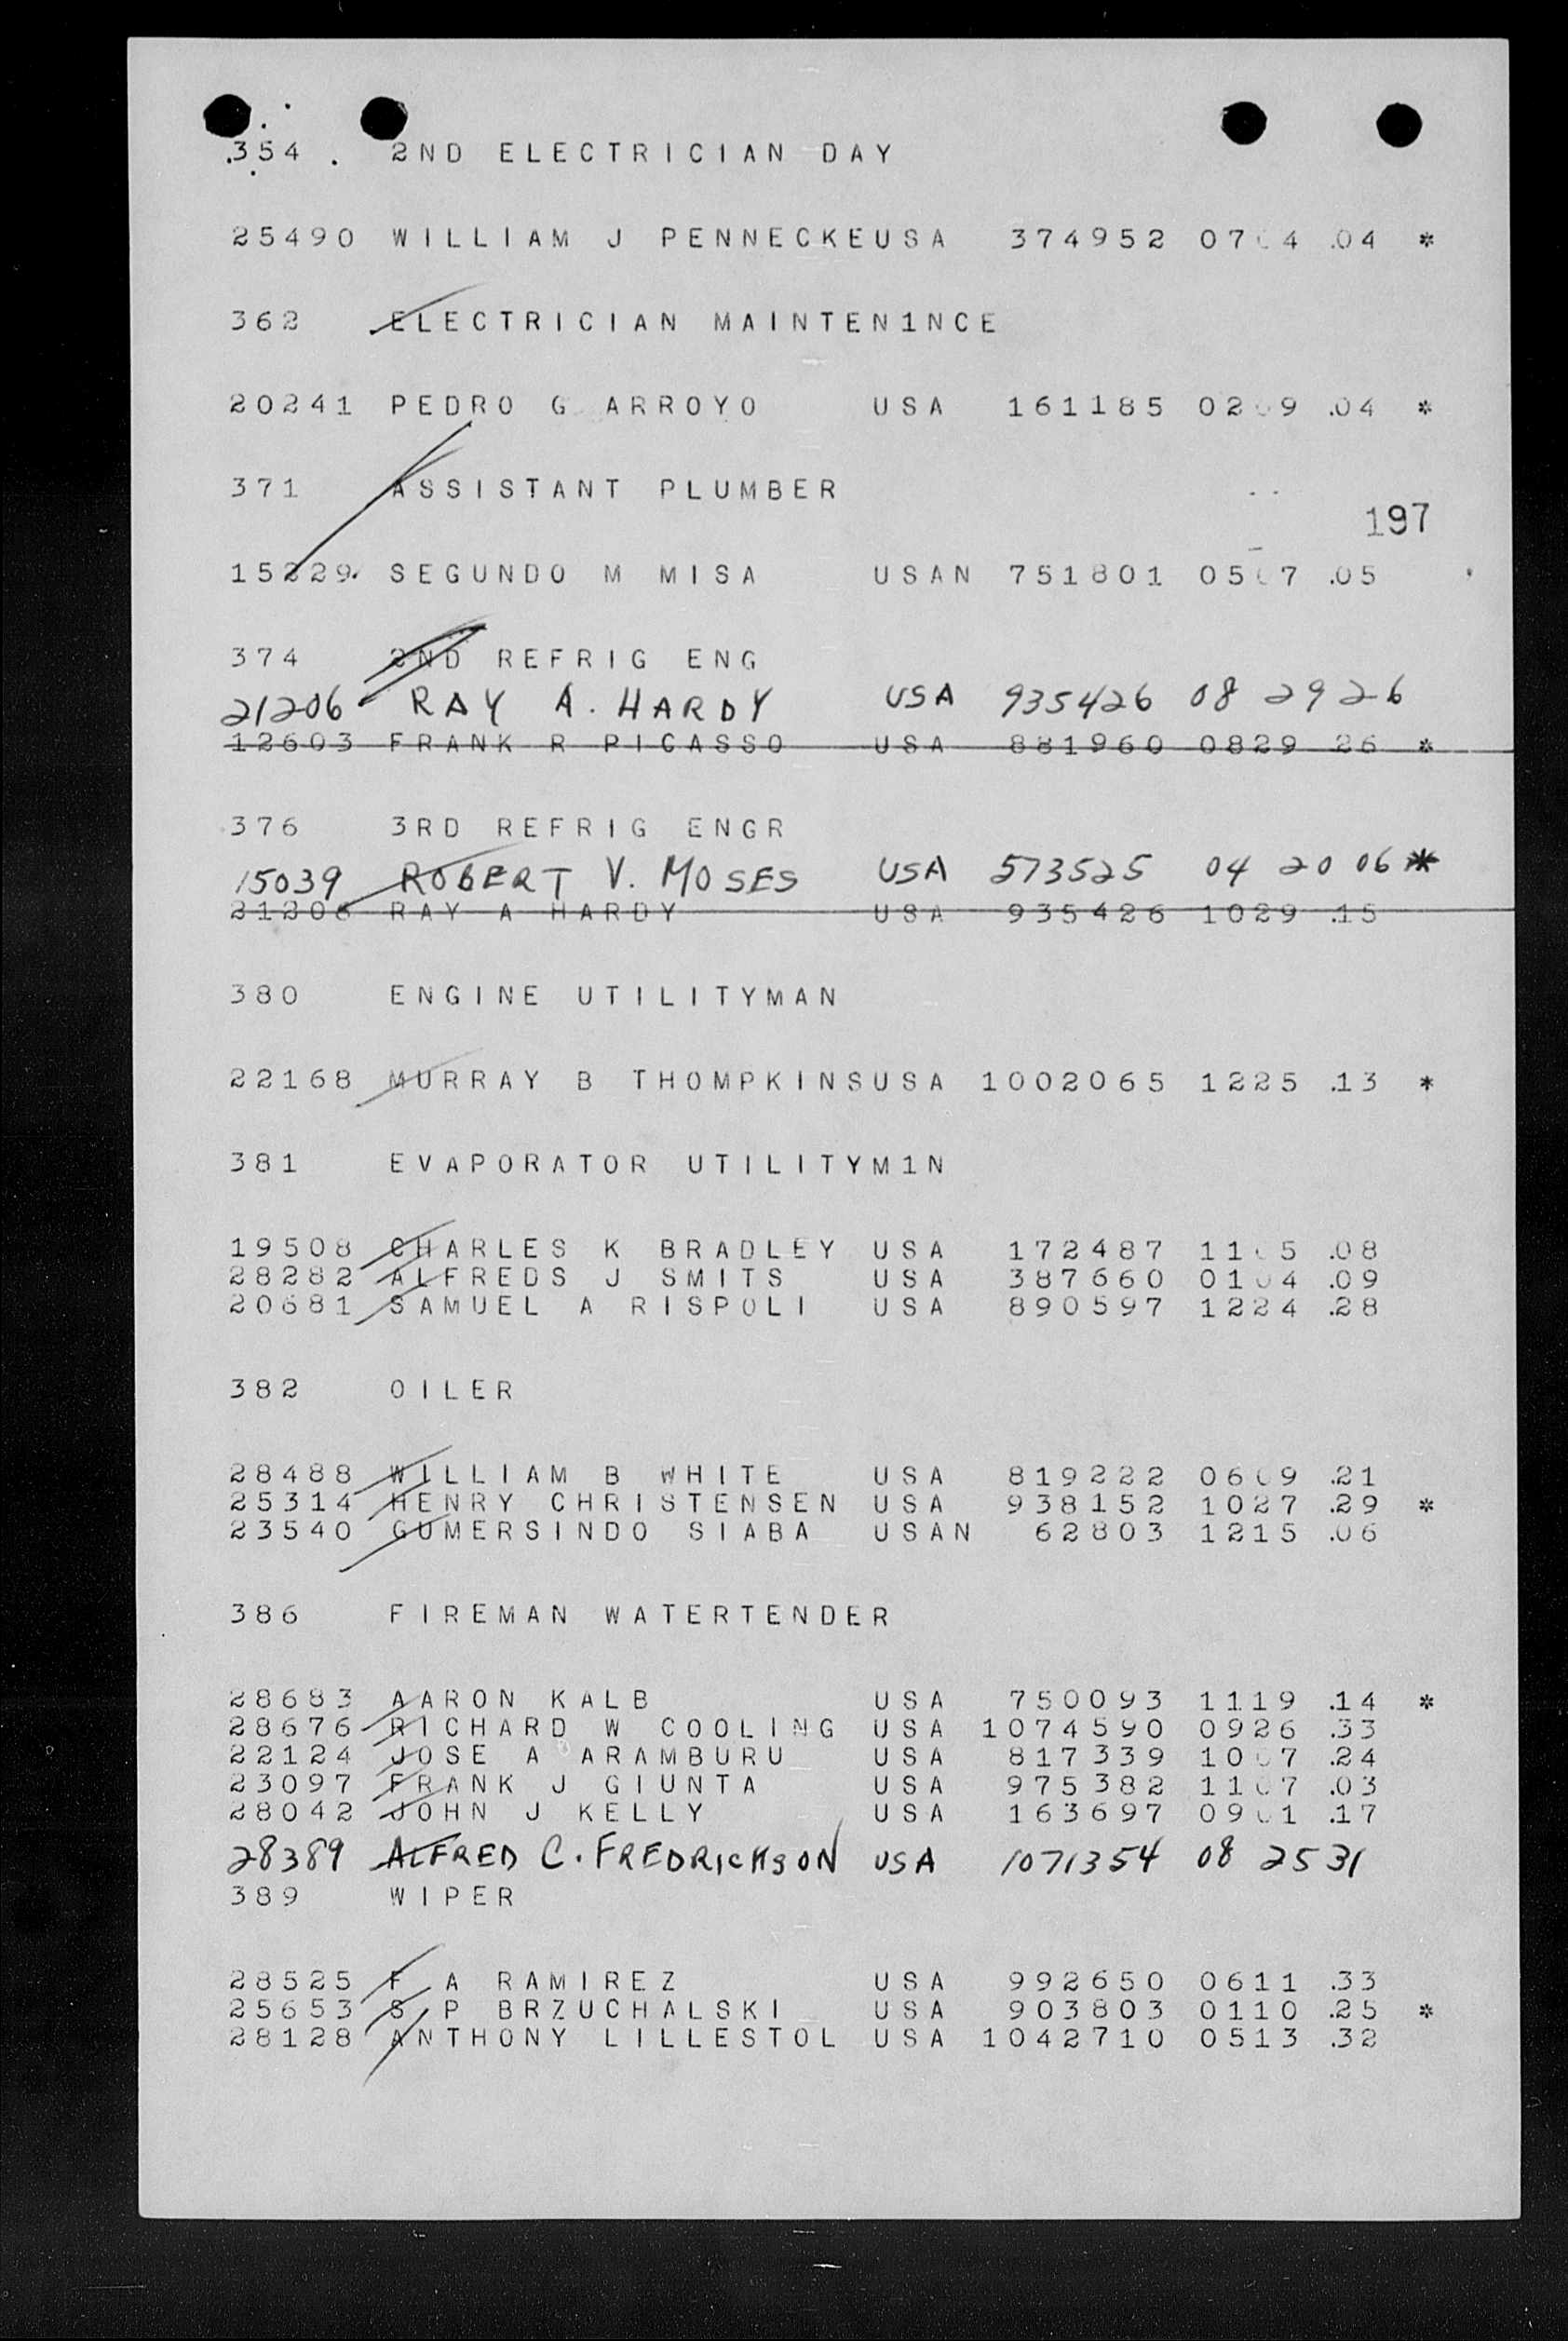 354 2ND ELECTRICIAN DAY
25490 WILLIAM J PENNECKEUSA 374952 0704 .04 *
362 ELECTRICIAN MAINTEN1NCE
20241 PEDRO G ARROYO USA 161185 0209 .04 *
371 ASSISTANT PLUMBER
197
15229 SEGUNDO M MISA USAN 751801 0507 .05
374 2ND REFRIG ENG
21206 RAY A. HARDY USA 935426 08 29 26
12603 FRANK R PICASSO USA 881960 0829 26 *
376 3RD REFRIG ENGR
15039 ROBERT V. MOSES USA 573525 04 20 06 *
21206 RAY A HARDY USA 935426 1029 .15
380 ENGINE UTILITYMAN
22168 MURRAY B THOMPKINSUSA 1002065 1225 .13 *
381 EVAPORATOR UTILITYM1N
19508 CHARLES K BRADLEY USA 172487 1105 .08
28282 ALFREDS J SMITS USA 387660 0104 .09
20681 SAMUEL A RISPOLI USA 890597 1224 .28
382 OILER
28488 WILLIAM B WHITE USA 819222 0609 .21
25314 HENRY CHRISTENSEN USA 938152 1027 .29 *
23540 GUMERSINDO SIABA USAN 62803 1215 .06
386 FIREMAN WATERTENDER
28683 AARON KALB USA 750093 1119 .14 *
28676 RICHARD W COOLING USA 1074590 0926 .33
22124 JOSE A ARAMBURU USA 817339 1007 .24
23097 FRANK J GIUNTA USA 975382 1107 .03
28042 JOHN J KELLY USA 163697 0901 .17
28389 ALFRED C. FREDRICKSON USA 1071354 08 25 31
389 WIPER
28525 F A RAMIREZ USA 992650 0611 .33
25653 S P BRZUCHALSKI USA 903803 0110 .25 *
28128 ANTHONY LILLESTOL USA 1042710 0513 .32